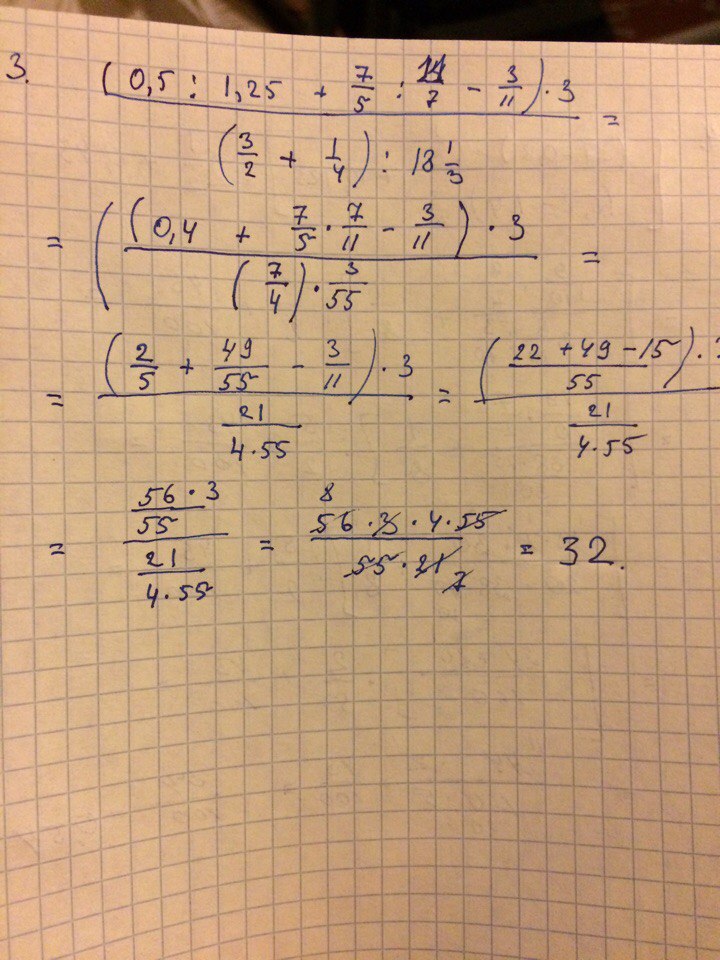 3. (0,5 : 1,25 + 7/5 : 11/7 - 3/11) · 3 / (3/2 + 1/4) : 18 1/3 =
= ((0,4 + 7/5 · 7/11 - 3/11) · 3 / (7/4) · 3/55 =
= (2/5 + 49/55 - 3/11) · 3 / 21/4·55 = (22 + 49 - 15/55) · / 21/4·55
= 56 · 3/55 / 21/4·55 = 8 56 · 3 · 4 · 55 / 55 · 21 7 = 32.